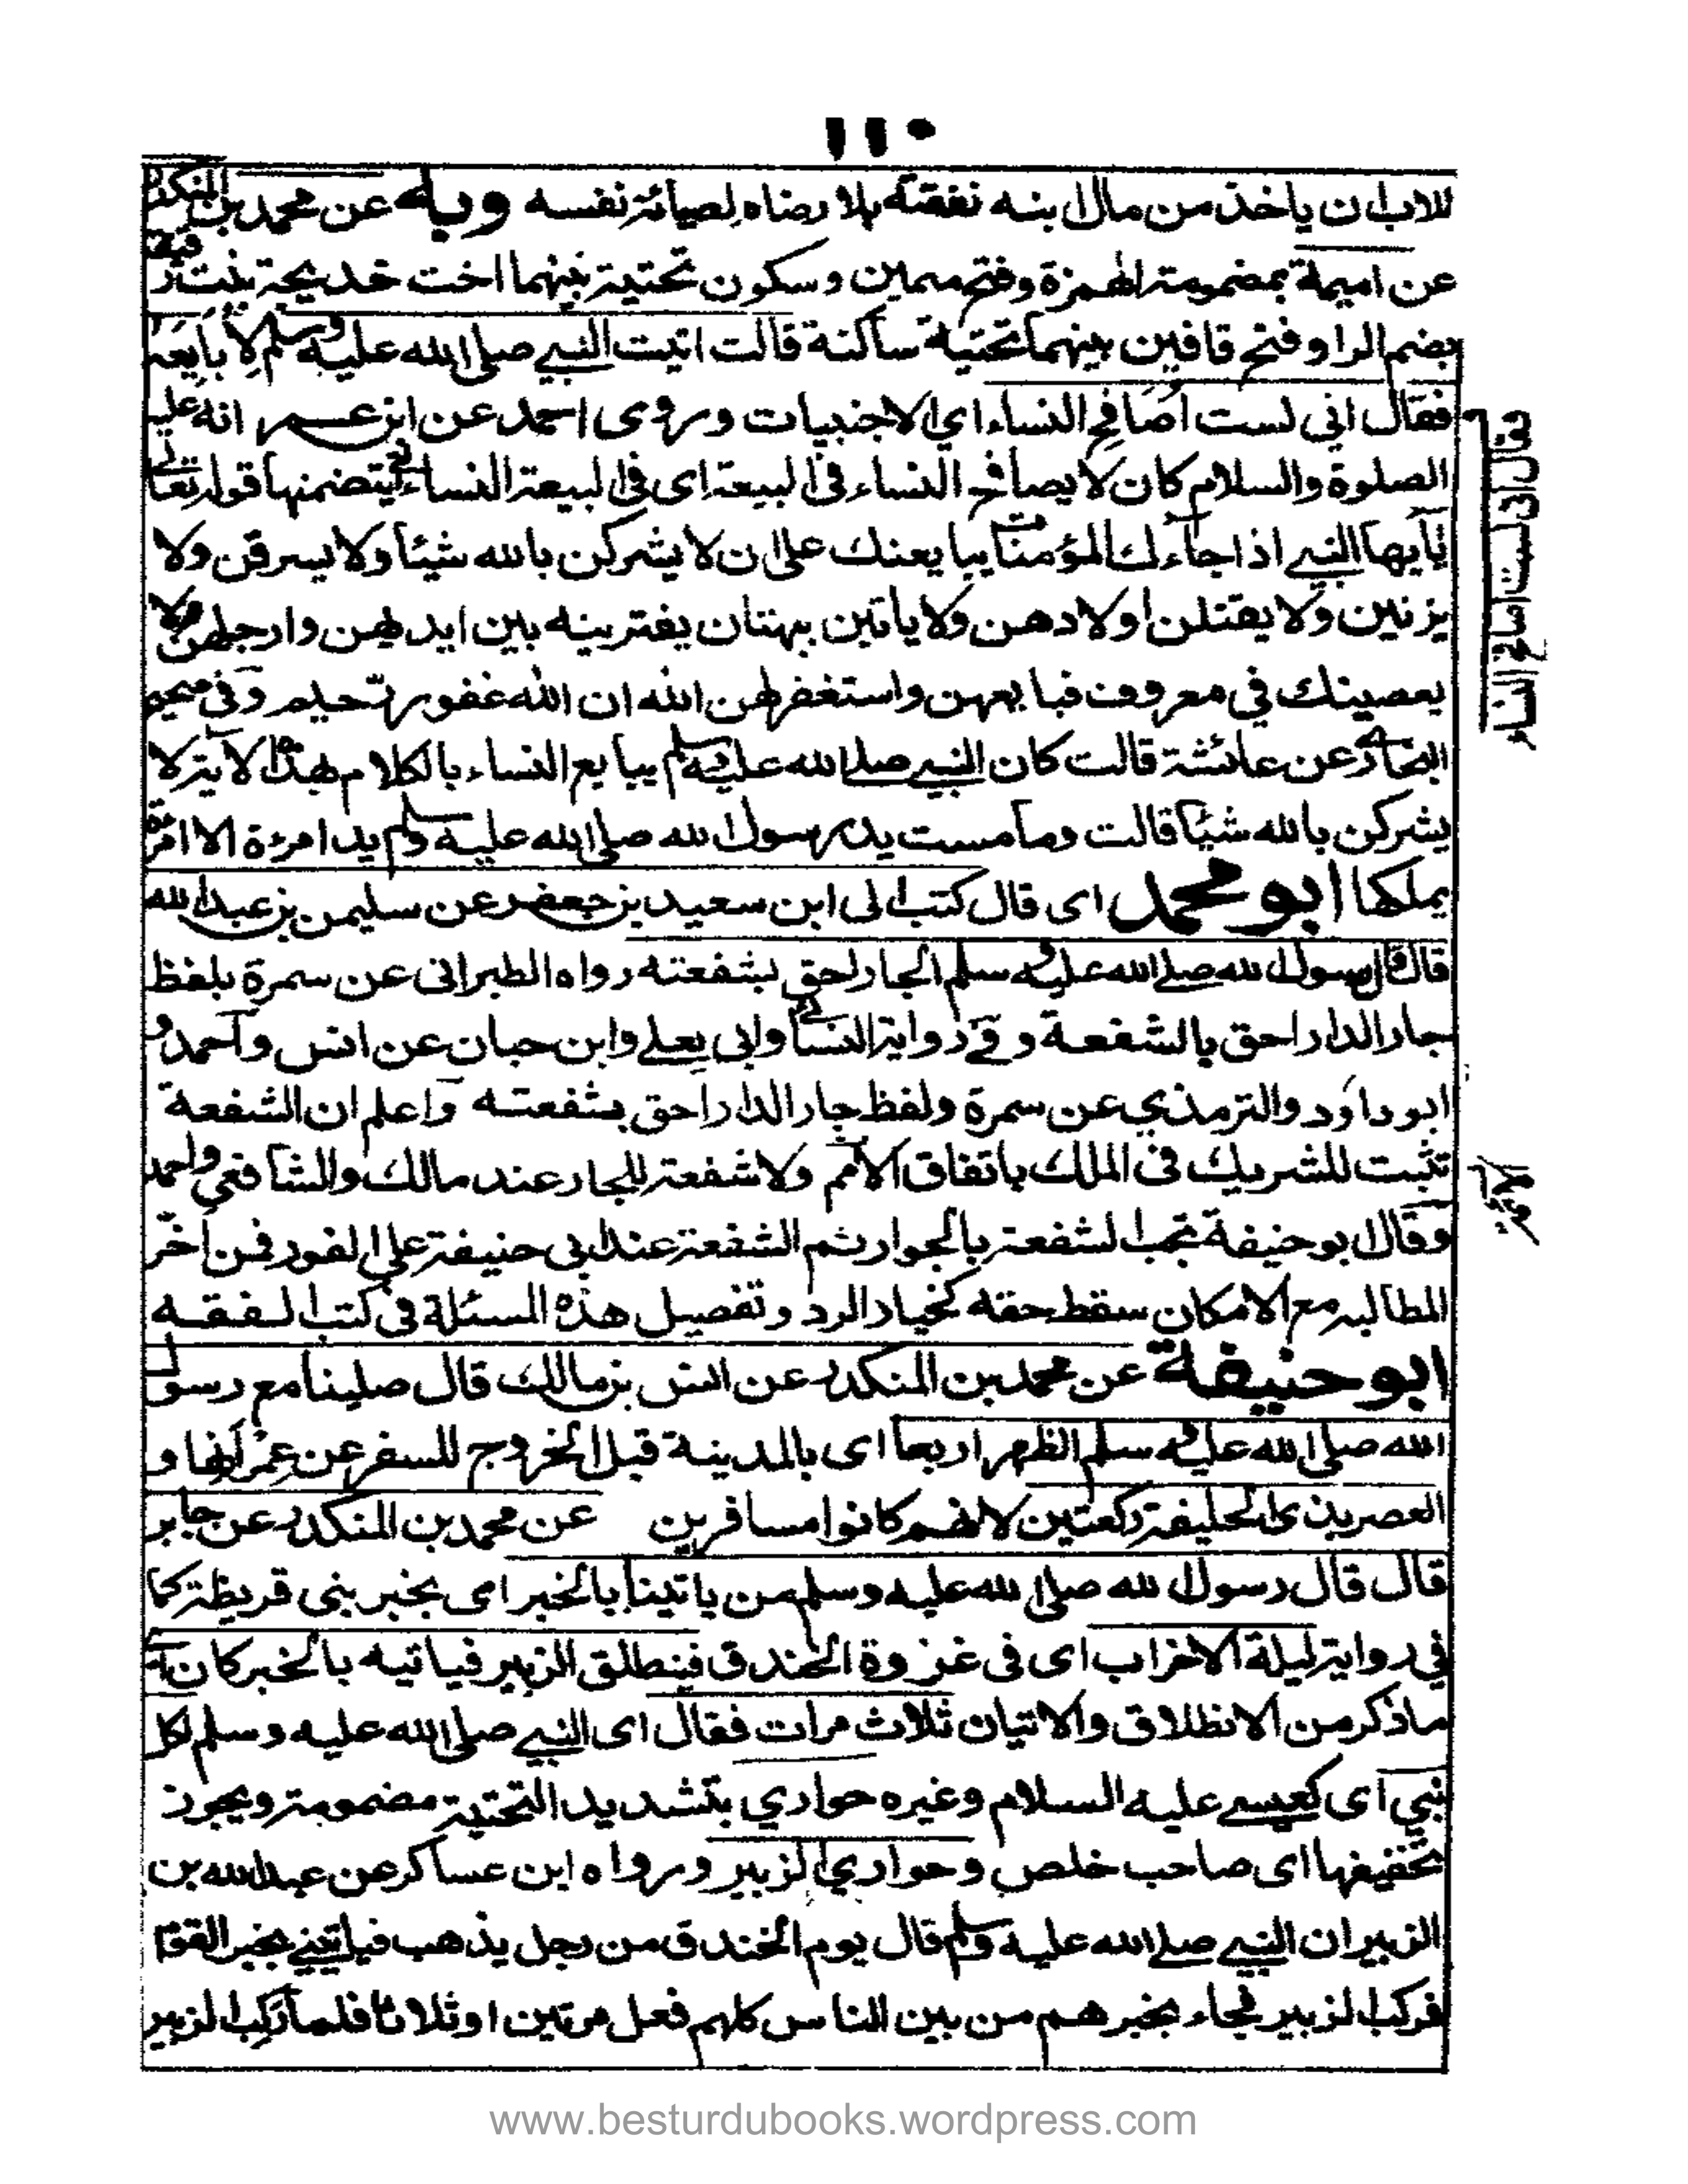 ١١٠
للاب ان ياخذ من مال ابنه نفقته بلا رضاه لصيانة نفسه وبه عن محمد بن المنكدر
عن اميمة بمضمومة الهمزة وفتح ميمين وسكون تحتية بينهما اخت خديجة بنت رقيقة
بضم الرا وفتح قافين بينهما تحتية ساكنة قالت اتيت النبي صلى الله عليه وسلم لابايعه
فقال اني لست اصافح النساء اي الاجنبيات وروى احمد عن ابن عمر انه عليه
الصلوة والسلام كان لا يصافح النساء في البيعة اى في البيعة النسائي يتضمنها قوله تعالى
يٰايها النبي اذا جاءك المؤمنات يبايعنك على ان لا يشركن بالله شيئا ولا يسرقن ولا
يزنين ولا يقتلن اولادهن ولا ياتين ببهتان يفترينه بين ايديهن وارجلهن ولا
يعصينك في معروف فبايعهن واستغفر لهن الله ان الله غفور رحيم وفى صحيح
البخارى عن عائشة قالت كان النبي صلى الله عليه وسلم يبايع النساء بالكلام بهذه الاية لا
يشركن بالله شيئا قالت وما مست يد رسول الله صلى الله عليه وسلم يد امرءة الا امرءة
يملكها ابو محمد اى قال كتب الى ابن سعيد بن جعفر عن سليمن بن عبد الله
قال قال رسول الله صلى الله عليه وسلم الجار احق بشفعته رواه الطبرانى عن سمرة بلفظ
جار الدار احق بالشفعة وفي رواية النسائي وابي يعلى وابن حبان عن انس وآحمد و
ابو داود والترمذي عن سمرة ولفظ جار الدار احق بشفعته واعلم ان الشفعة
تثبت للشريك فى الملك باتفاق الامم ولا شفعة للجار عند مالك والشافعي واحمد
وقال ابو حنيفة تجب الشفعة بالجوار ثم الشفعة عند ابى حنيفة على الفور فمن اخّر
المطالبه مع الامكان سقط حقه كخيار الرد وتفصيل هذه المسئلة في كتب الفقه
ابو حنيفة عن محمد بن المنكدر عن انس بن مالك قال صلينا مع رسول
الله صلى الله عليه وسلم الظهر اربعا اى بالمدينة قبل الخروج للسفر عن عمرانها و
العصر بذى الحليفة ركعتين لانهم كانوا مسافرين عن محمد بن المنكدر عن جابر
قال قال رسول الله صلى الله عليه وسلم من ياتينا بالخبر اى بخبر بنى قريظة كما
في رواية ليلة الاحزاب اى فى غزوة الخندق فينطلق الزبير فياتيه بالخبر كان
ما ذكر من الانطلاق والاتيان ثلاث مرات فقال اى النبي صلى الله عليه وسلم لكل
نبي اى كعيسى عليه السلام وغيره حواري بتشديد التحتية مضمومة ويجوز
تخفيفها اى صاحب خلص وحواري الزبير ورواه ابن عساكر عن عبد الله بن
الزبير ان النبي صلى الله عليه وسلم قال يوم الخندق من رجل يذهب فياتيني بخبر القوم
فركب الزبير فجاء بخبرهم من بين الناس كلهم فعل مرتين او ثلاثا فلما ركب الزبير
فقال انى لست اصافح النساء
الائمة
www.besturdubooks.wordpress.com